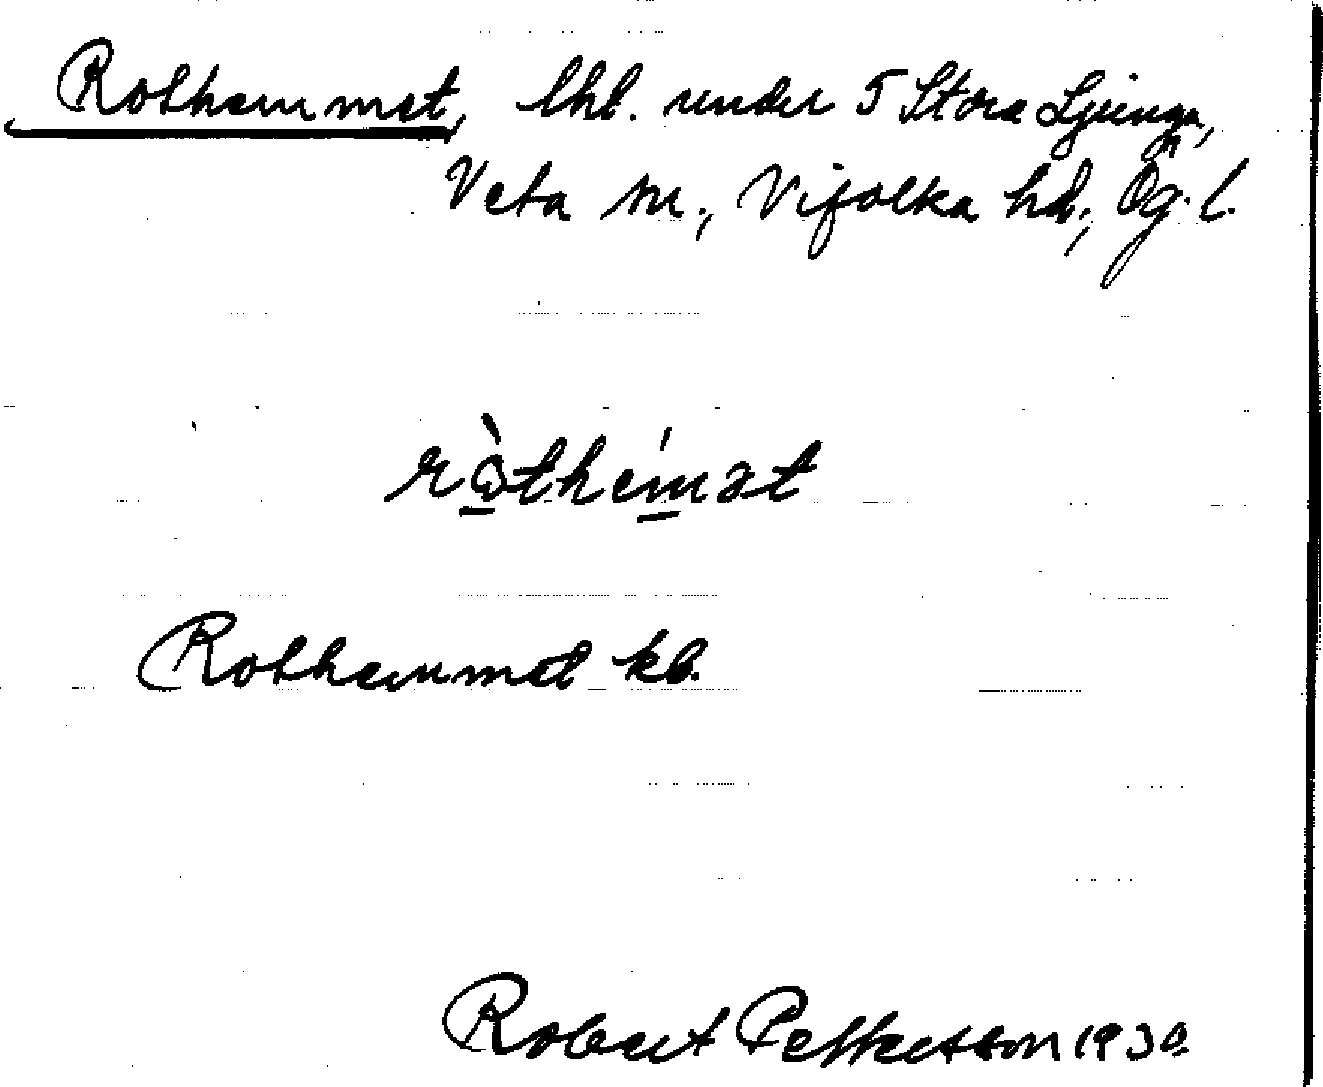 Rothemmet, lht. under 5 Stora Ljunga,
Veta sn., Vifolka hd., Ög. l.
ròthemət
Rothemmet kb.
Robert Pettersson 1930